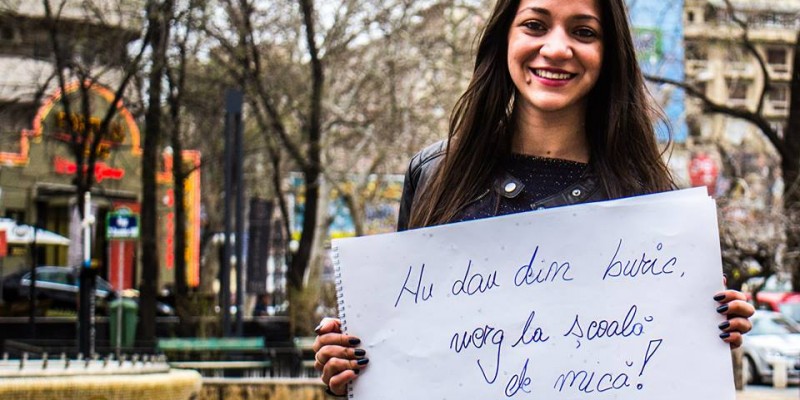 Nu dau din buric,
merg la școală
de mică!